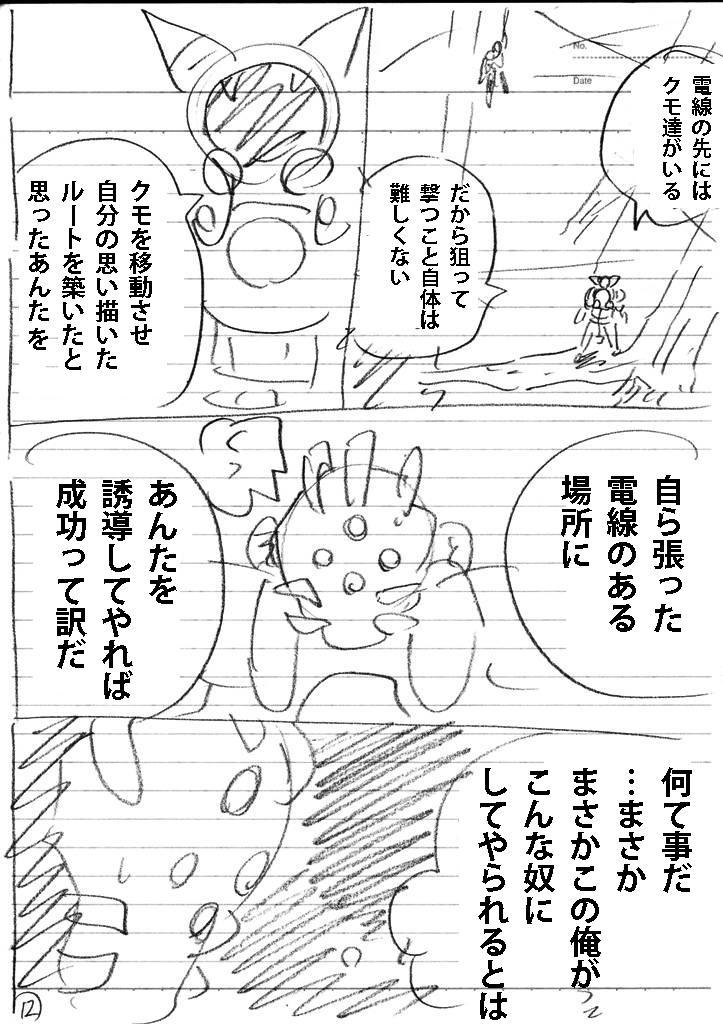 電線の先には
クモ達がいる
No.
Date
だから狙って
撃つこと自体は
難しくない
クモを移動させ
自分の思い描いた
ルートを築いたと
思ったあんたを
自ら張った
電線のある
場所に
あんたを
誘導してやれば
成功って訳だ
何て事だ
…まさか
まさかこの俺が
こんな奴に
してやられるとは
12